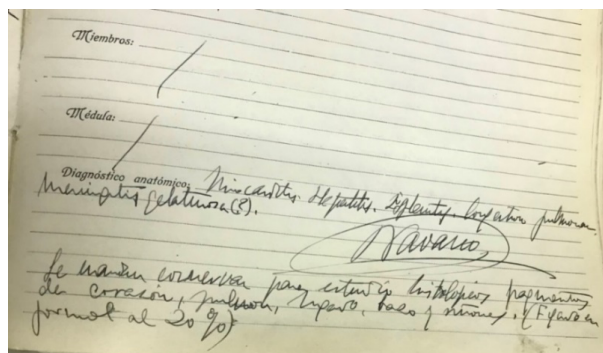 Miembros:
Médula:
Diagnóstico anatómico: Miocarditis. Hepatitis. Esplenitis. Congestion pulmonar.
Meningitis gelatinosa (?).
Navarro
Se mandan conservar para estudio histológico fragmentos
de corazón, pulmon, hígado, bazo y riñones. (Fijado en
formol al 20 %)